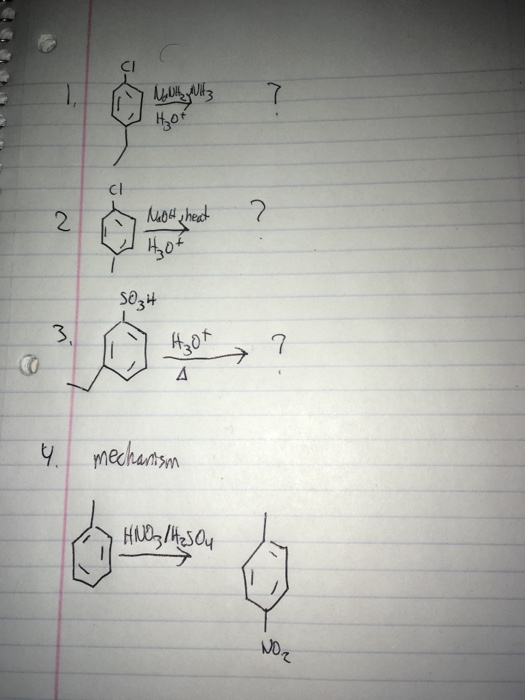 Cl
1. NaNH2, NH3 ?
H3O+
Cl
2 NaOH, heat ?
H3O+
SO3H
3. H3O+ ?
Δ
4. mechanism
HNO3/H2SO4
NO2